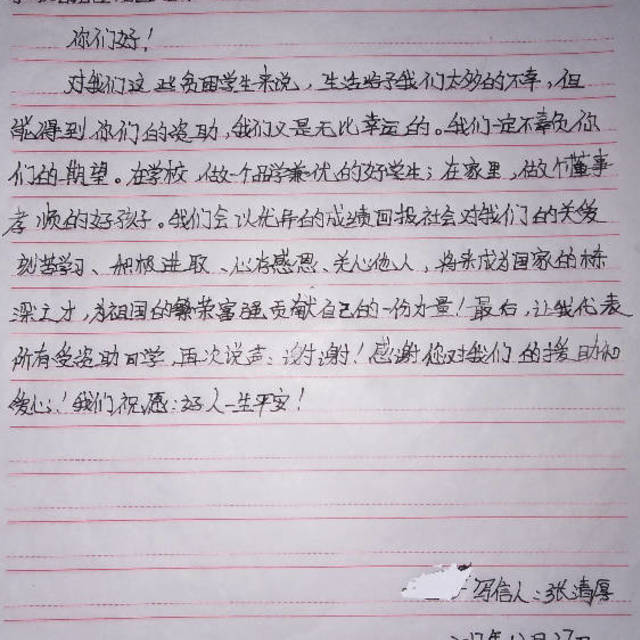 你们好!
对我们这些贫困学生来说,生活给予我们太多的不幸,但
能得到你们的资助,我们又是无比幸运的。我们一定不辜负你
们的期望。在学校,做一个品学兼优的好学生;在家里,做个懂事
孝顺的好孩子。我们会以优异的成绩回报社会对我们的关爱
刻苦学习、积极进取、心存感恩、关心他人,将来成为国家的栋
梁之才,为祖国的繁荣富强贡献自己的一份力量!最后,让我代表
所有受资助同学,再次说声:谢谢!感谢您对我们的援助和
爱心!我们祝愿:好人一生平安!
写信人:张清厚